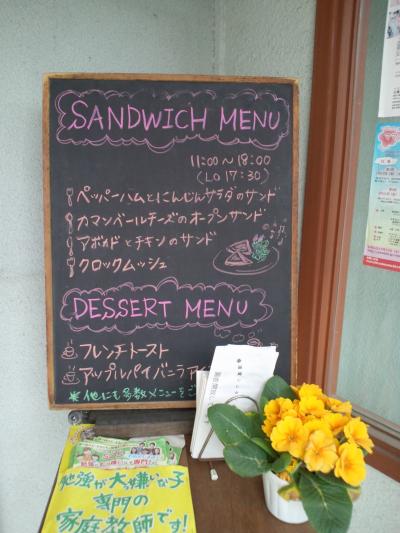 SANDWICH MENU
11:00～18:00
(LO 17:30)
ペッパーハムとにんじんサラダのサンド
カマンベールチーズのオープンサンド
アボカドとチキンのサンド
クロックムッシュ
DESSERT MENU
フレンチトースト
アップルパイバニラアイ
※他にも多数メニューをご
勉強が大っ嫌いな子
専門の
家庭教師です!